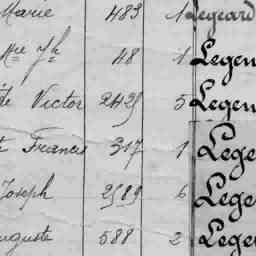 Marie 483 1 Legeard
Mle Jh 48 1 Legen
Victor 2425 5 Legen
Francis 317 1 Lege
Joseph 2589 6 Lege
Auguste 588 2 Lege